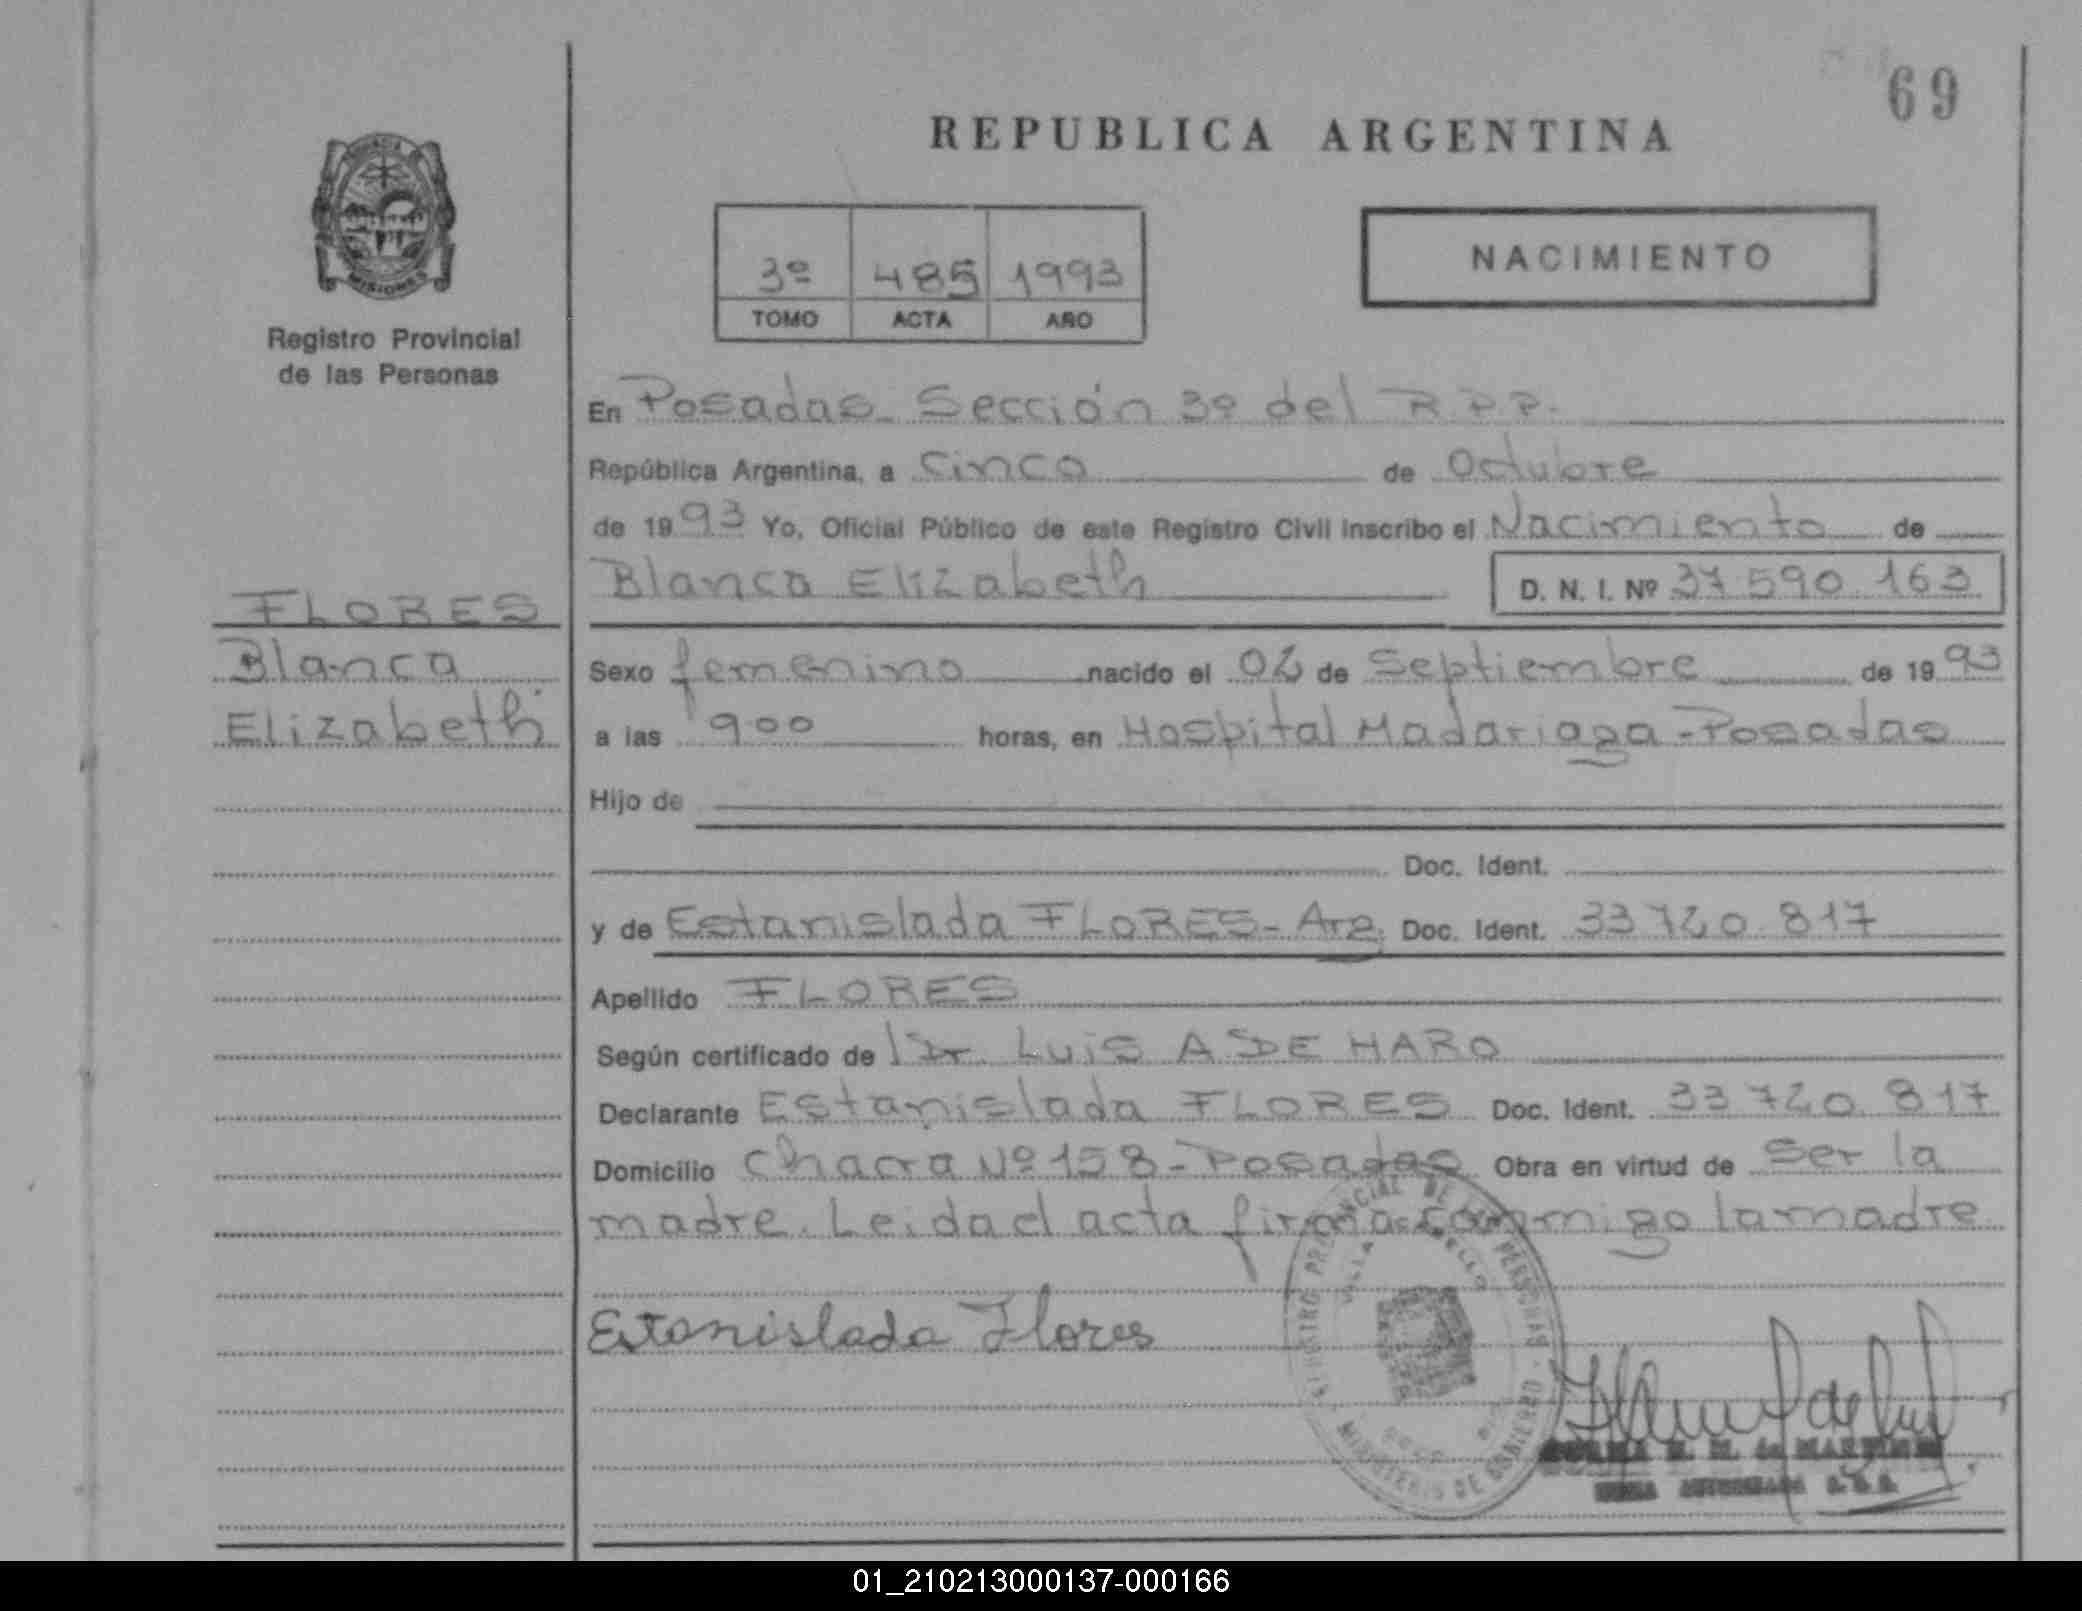 69
REPUBLICA ARGENTINA
MISIONES
Registro Provincial
de las Personas
3º 485 1993
TOMO ACTA AÑO
NACIMIENTO
En Posadas - Sección 3º del R.P.P.
República Argentina, a Cinco de Octubre
de 1993 Yo, Oficial Público de este Registro Civil inscribo el Nacimiento de
Blanca Elizabeth D. N. I. Nº 37 590 163
FLORES
Blanca
Elizabeth
Sexo femenino nacido el 02 de Septiembre de 1993
a las 900 horas, en Hospital Madariaga - Posadas
Hijo de
Doc. Ident.
y de Estanislada FLORES - Arg. Doc. Ident. 33 720 817
Apellido FLORES
Según certificado de Dr. LUIS A DE HARO
Declarante Estanislada FLORES Doc. Ident. 33 720 817
Domicilio Chacra Nº 158 - Posadas Obra en virtud de Ser la
madre. Leida el acta firma conmigo la madre
Estanislada Flores
REGISTRO PROVINCIAL DE LAS PERSONAS
MINISTERIO DE GOBIERNO
VILLA
M. de MARTINEZ
01_210213000137-000166